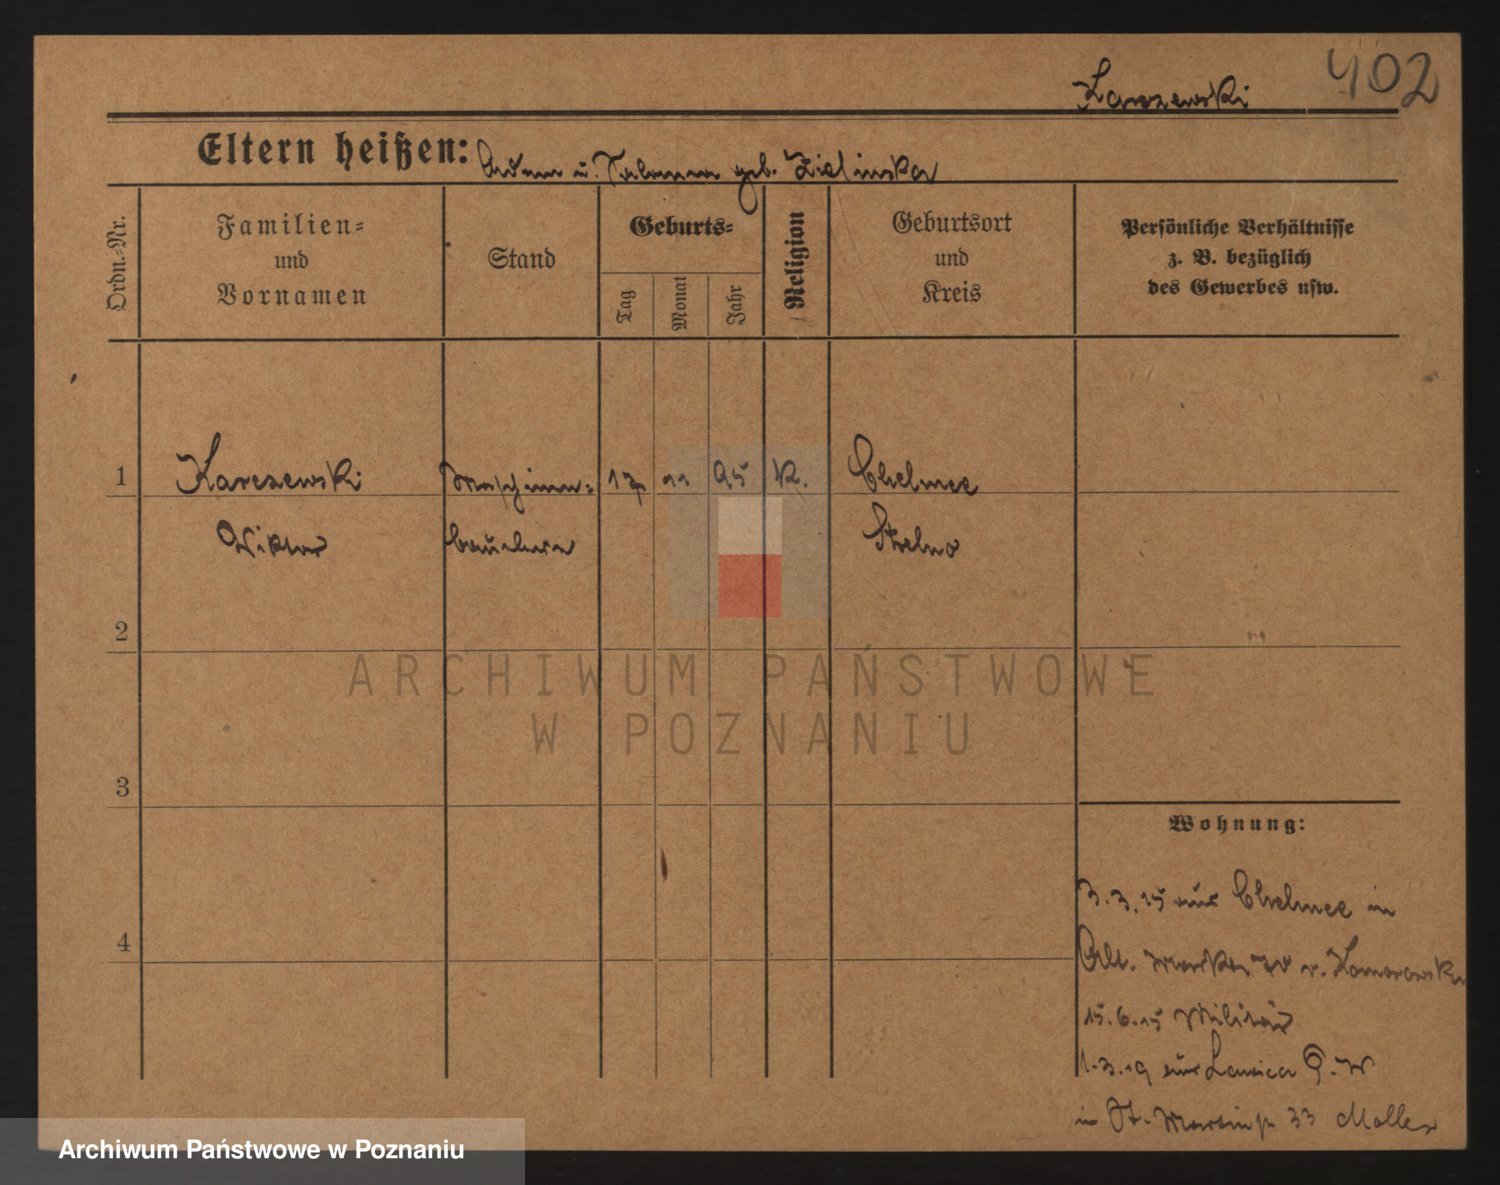 402
Karczewski
Eltern heißen: Adam u. Salomea geb. Zielinska
Ordn.=Nr.
Familien=
und
Vornamen
Stand
Geburts=
Tag
Monat
Jahr
Religion
Geburtsort
und
Kreis
Persönliche Verhältnisse
z. B. bezüglich
des Gewerbes usw.
1 Karczewski Maschinen= 17 11 95 K. Chelmce
Wiktor baulehrer Strelno
2
3
4
Wohnung:
3.3.15 aus Chelmce in
Alt. Markt v. Komorowski
15.6.15 Militär
1.3.19 aus
in St. Martinstr 33
ARCHIWUM PAŃSTWOWE
W POZNANIU
Archiwum Państwowe w Poznaniu